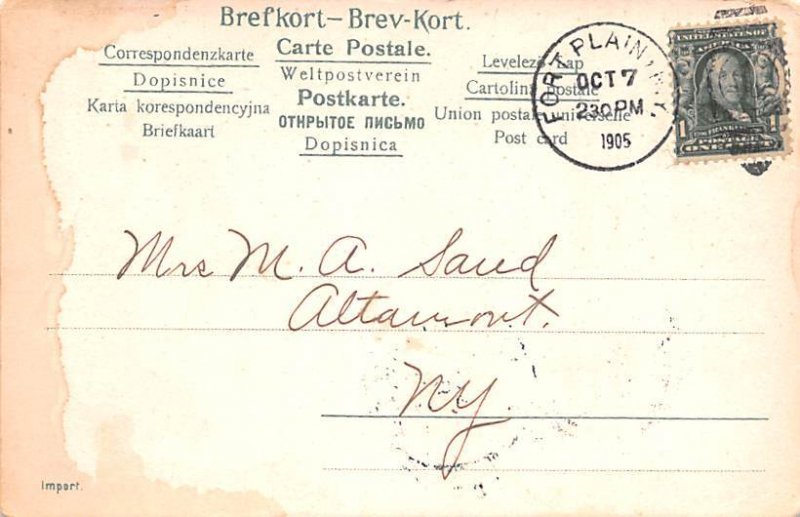 Brefkort–Brev-Kort.
Correspondenzkarte
Dopisnice
Karta korespondencyjna
Briefkaart
Carte Postale.
Weltpostverein
Postkarte.
ОТКРЫТОЕ ПИСЬМО
Dopisnica
Levelező Lap
Cartolina postale
Union postale universelle
Post card
FORT PLAIN, N.Y.
OCT 7
230 PM
1905
UNITED STATES OF
AMERICA
1 FRANKLIN 1
ONE CENT
Mrs M. A. Sand
Altamont.
NY.
Import.